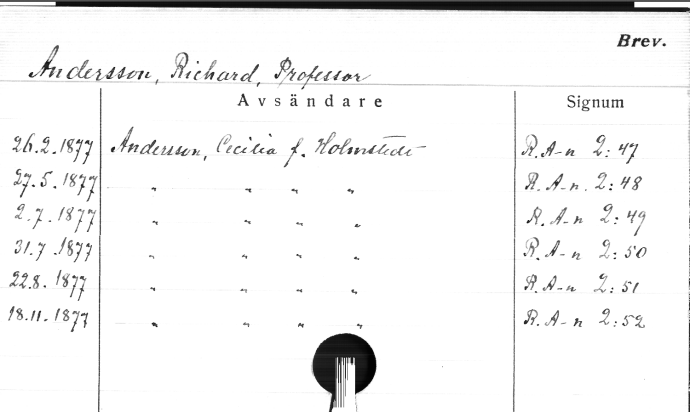 Brev.
Andersson, Richard, Professor
Avsändare Signum
26.2.1877 Andersson, Cecilia f. Holmstedt R. A-n 2:47
27.5.1877 " " " " R. A-n. 2:48
2.7.1877 " " " " R. A-n 2:49
31.7.1877 " " " " R. A-n 2:50
22.8.1877 " " " " R. A-n 2:51
18.11.1877 " " " " R. A-n 2:52